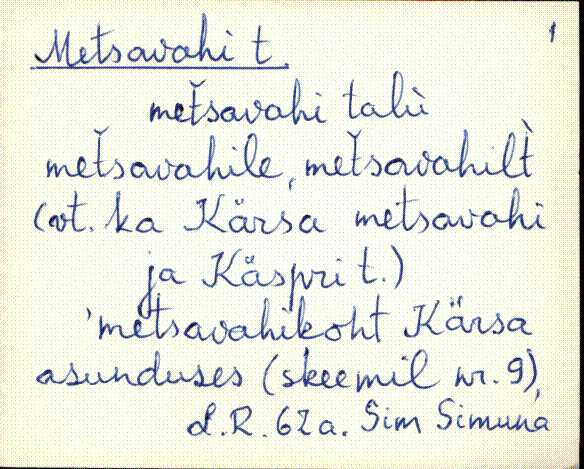 1
Metsavahi t.
meťsavahi talù
meťsavahile, meťsavahilt̀
(vt. ka Kärsa metsavahi
ja Käspri t.)
'metsavahikoht Kärsa
asunduses (skeemil nr. 9),
L.R. 62a. Sim Simuna